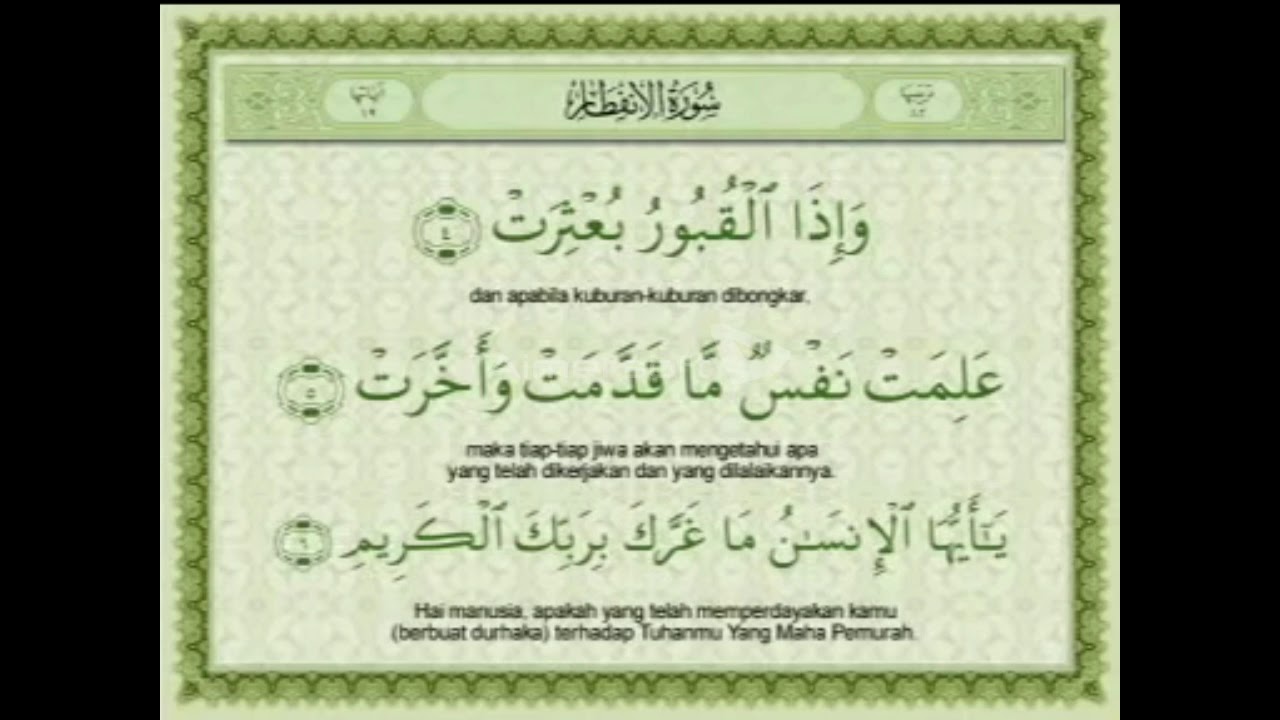 ترتيبها ٨٢ سُورَةُ الانفِطَار آياتها ١٩
وَإِذَا ٱلْقُبُورُ بُعْثِرَتْ ٤
dan apabila kuburan-kuburan dibongkar,
عَلِمَتْ نَفْسٌ مَّا قَدَّمَتْ وَأَخَّرَتْ ٥
maka tiap-tiap jiwa akan mengetahui apa
yang telah dikerjakan dan yang dilalaikannya.
يَٰٓأَيُّهَا ٱلْإِنسَٰنُ مَا غَرَّكَ بِرَبِّكَ ٱلْكَرِيمِ ٦
Hai manusia, apakah yang telah memperdayakan kamu
(berbuat durhaka) terhadap Tuhanmu Yang Maha Pemurah.